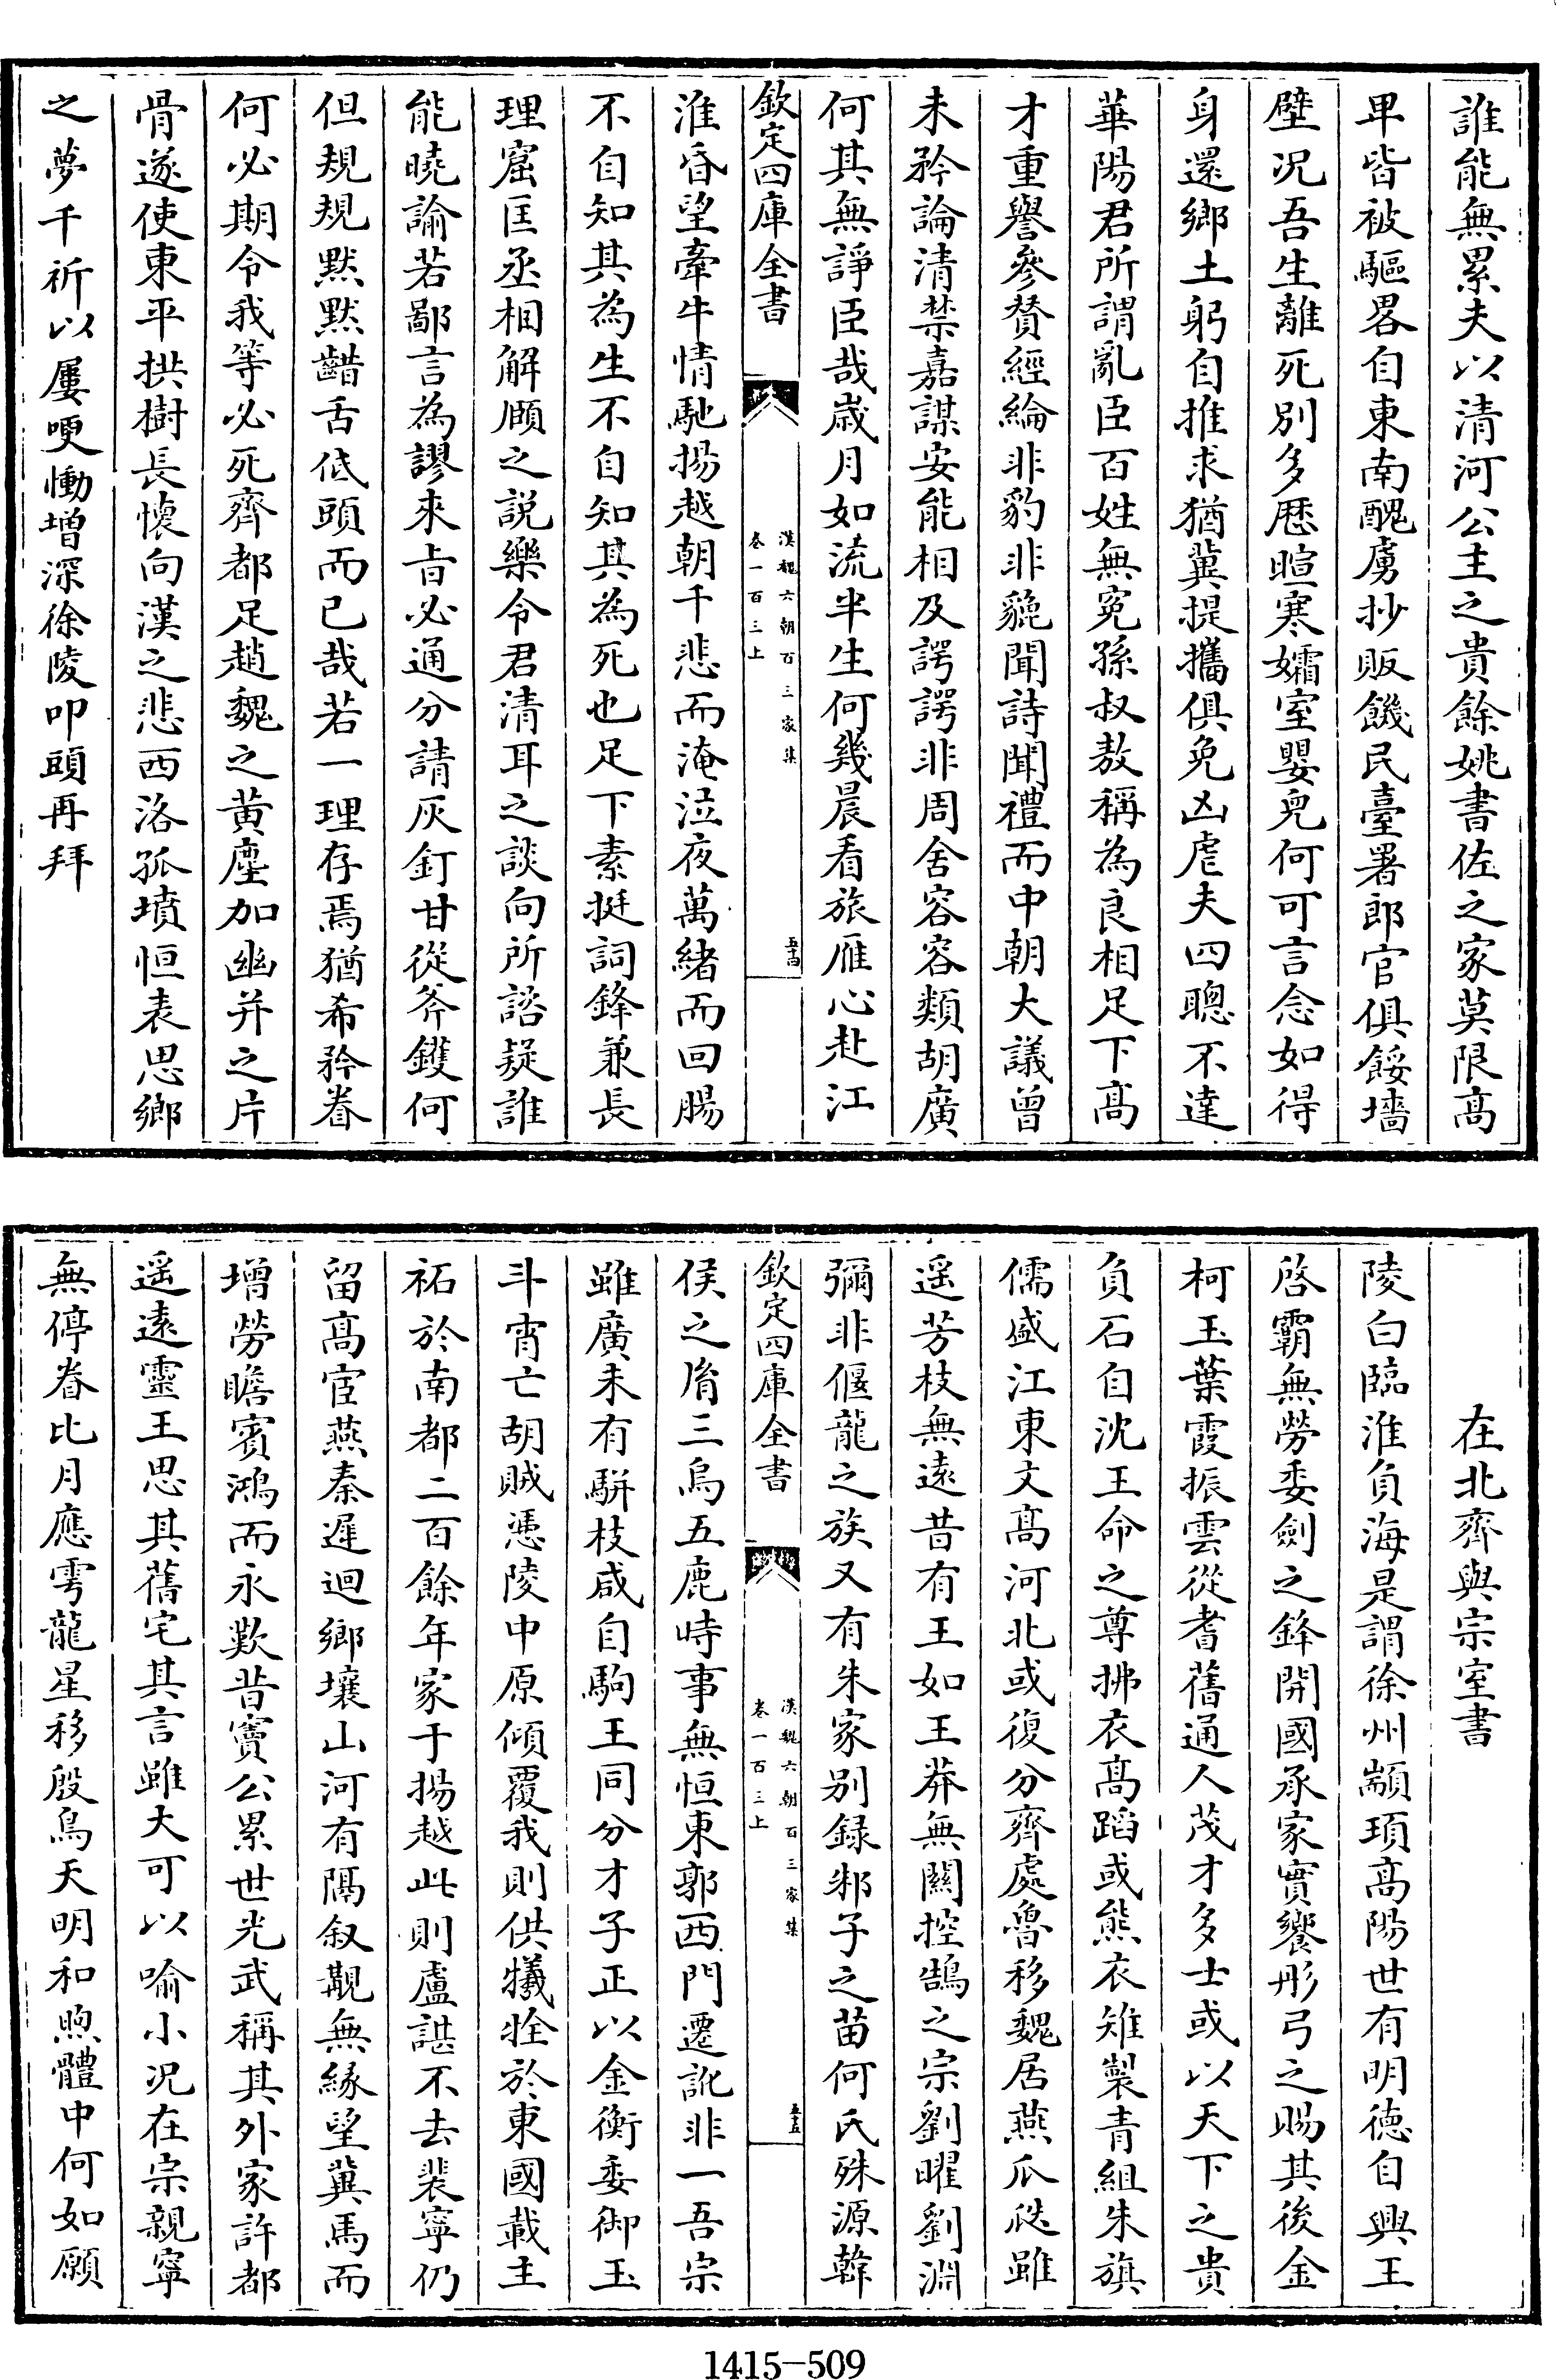 誰能無累夫以清河公主之貴餘姚書佐之家莫限髙
卑皆被驅畧自東南醜虜抄販饑民臺署郎官俱餒墻
壁况吾生離死别多厯暄寒孀室嬰兒何可言念如得
身還鄉土躬自推求猶冀提攜俱免凶虐夫四聰不達
華陽君所謂亂臣百姓無寃孫叔敖稱為良相足下髙
才重譽參賛經綸非豹非貔聞詩聞禮而中朝大議曾
未矜論清禁嘉謀安能相及諤諤非周舍容容類胡廣
何其無諍臣哉歳月如流半生何幾晨看旅雁心赴江
欽定四庫全書
漢魏六朝百三家集
卷一百三上
五十四
淮昏望牽牛情馳揚越朝千悲而淹泣夜萬緒而回腸
不自知其為生不自知其為死也足下素挺詞鋒兼長
理窟匡丞相解頤之説樂令君清耳之談向所諮疑誰
能曉諭若鄙言為謬來㫖必通分請灰釘甘從斧鑊何
但規規黙黙齰舌低頭而已哉若一理存焉猶希矜眷
何必期令我等必死齊都足趙魏之黄塵加幽并之片
骨遂使東平拱樹長懐向漢之悲西洛孤墳恒表思鄉
之夢千祈以屢哽慟增深徐陵叩頭再拜
在北齊與宗室書
陵白臨淮負海是謂徐州顓頊髙陽世有明徳自興王
啓霸無勞委劍之鋒開國承家實饗彤弓之賜其後金
柯玉葉霞振雲從耆舊通人茂才多士或以天下之貴
負石自沈王命之尊拂衣髙蹈或熊衣雉製青組朱旗
儒盛江東文髙河北或復分齊處魯移魏居燕瓜瓞雖
遥芳枝無逺昔有王如王莽無闗控鵠之宗劉曜劉淵
彌非偃龍之族又有朱家别録邾子之苗何氏殊源韓
欽定四庫全書
漢魏六朝百三家集
卷一百三上
五十五
侯之胤三烏五鹿時事無恒東郭西門遷訛非一吾宗
雖廣未有駢枝咸自駒王同分才子正以金衡委御玉
斗宵亡胡賊憑陵中原傾覆我則供犧牷於東國載主
祏於南都二百餘年家于揚越此則盧諶不去裴寧仍
留髙宦燕秦遲迴鄉壤山河有隔叙覯無縁望冀馬而
增勞瞻賓鴻而永歎昔竇公累世光武稱其外家許都
遥逺靈王思其舊宅其言雖大可以喻小况在宗親寧
無停眷比月應雩龍星移殷鳥天明和煦體中何如願
1415-509